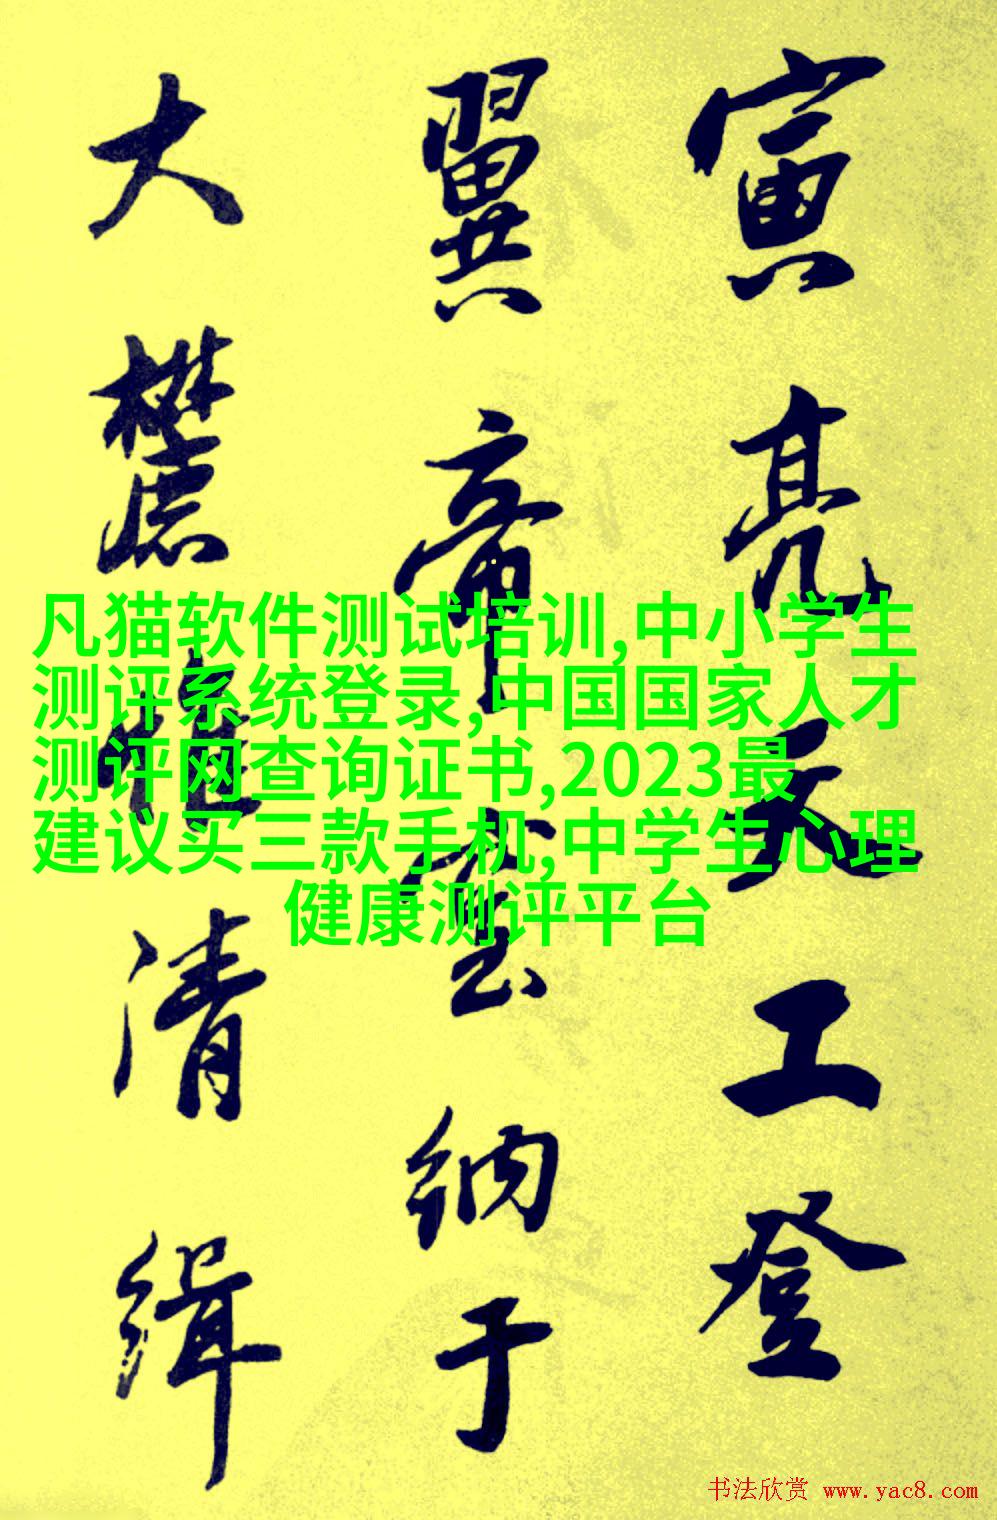 寅亮天工登
翼帝室納于
大麓惟清緝
凡猫软件测试培训,中小学生
测评系统登录,中国国家人才
测评网查询证书,2023最
建议买三款手机,中学生心理
健康测评平台
书法欣赏 www.yac8.com